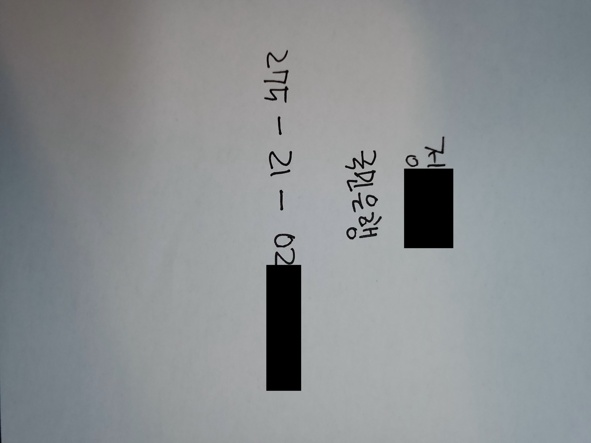 국민은행
275 - 21 - 02